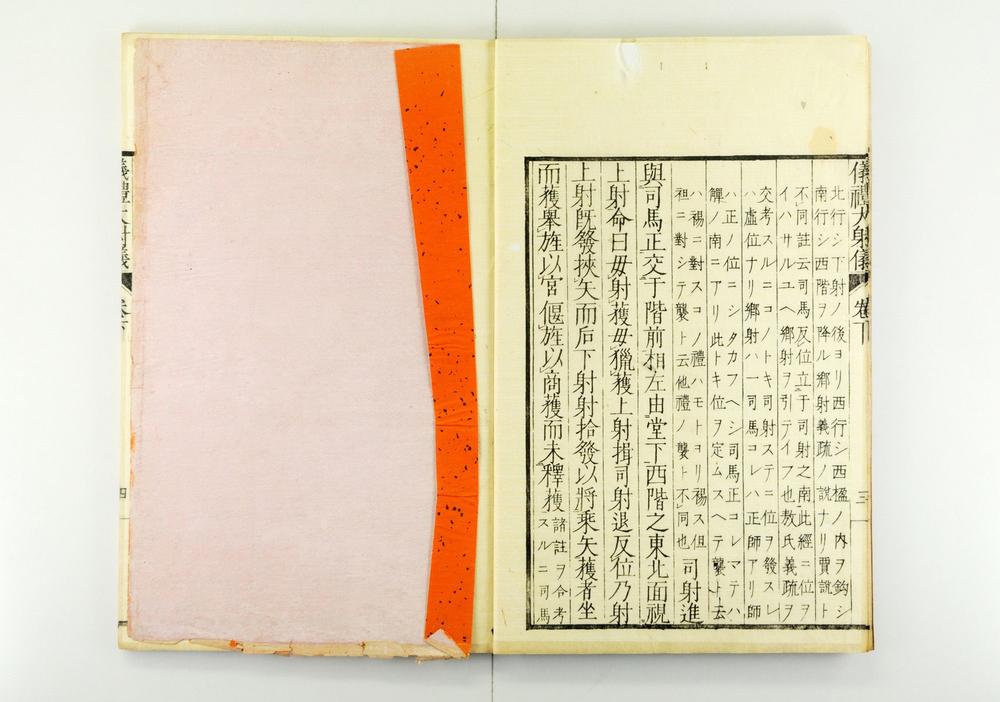 儀禮大射儀 卷下 三
北行シ下射ノ後ヨリ西行シ西楹ノ内ヲ鈎シ
南行シ西階ヲ降ル鄉射義疏ノ說ナリ賈說ト
不同註云司馬反位立于司射之南此經ニ位ヲ
イハサルユヘ鄉射ヲ引テイフ也敖氏義疏ヲ
交考スルニコノトキ司射ステニ位ヲ發スレ
ハ虛位ナリ鄉射ハ一司馬コレハ正師アリ師
ハ正ノ位ニシタカフヘシ司馬正コレマテハ
觶ノ南ニアリ此トキ位ヲ定ムスヘテ襲ト云
ハ裼ニ對スコノ禮ハモトヨリ裼ス但
袒ニ對シテ襲ト云他禮ノ襲ト不同也
司射進
與司馬正交于階前相左由堂下西階之東北面視
上射命曰毋射獲毋獵獲上射揖司射退反位乃射
上射旣發挾矢而后下射射拾發以將乘矢獲者坐
而獲舉旌以宮偃旌以商獲而未釋獲
諸註ヲ合考
スルニ司馬
儀禮大射儀 卷下
四